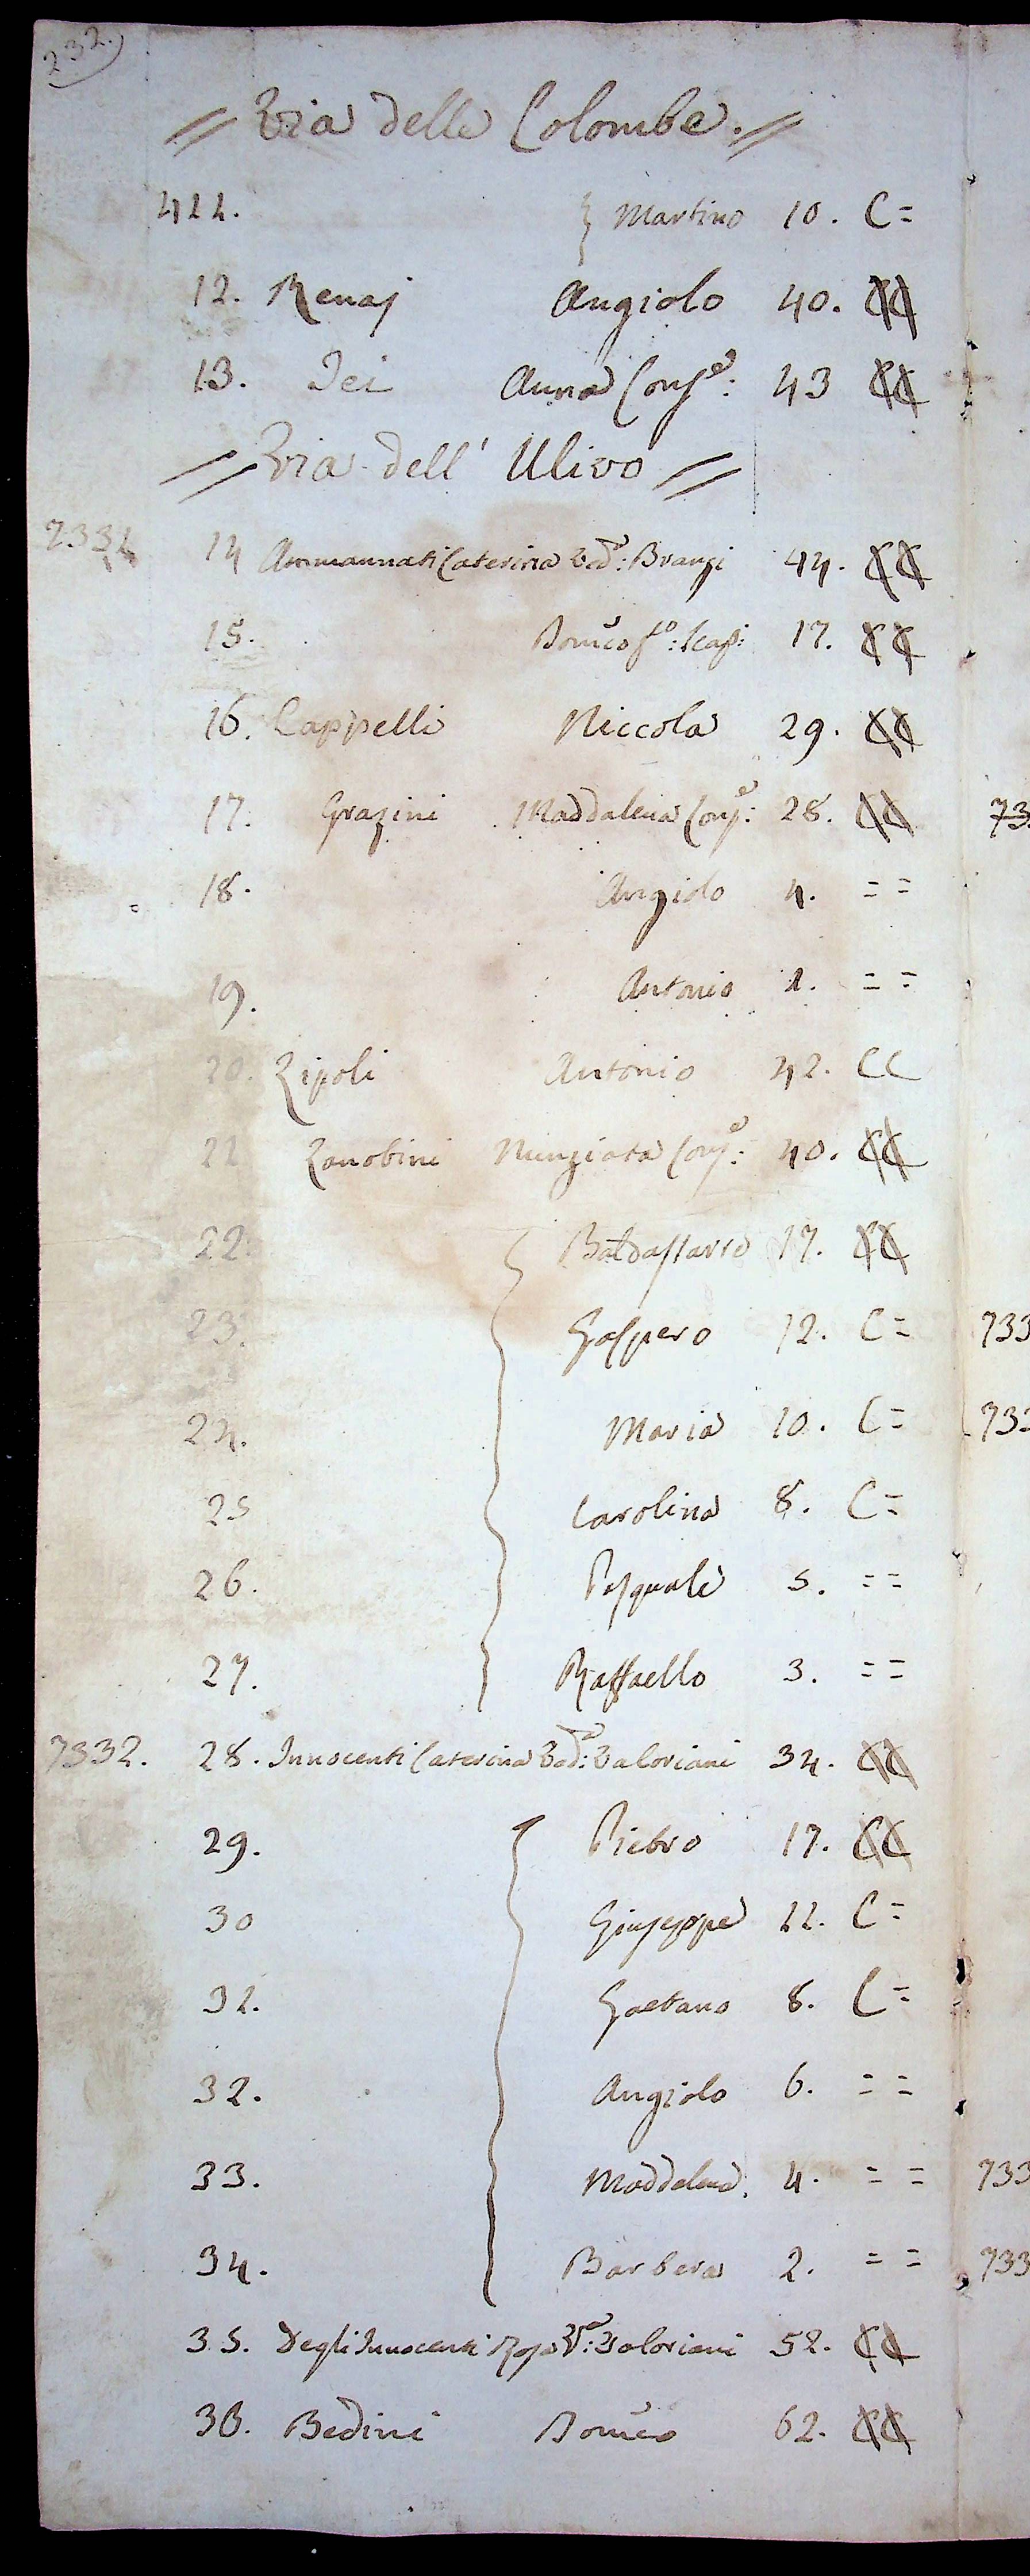 232.
// Via delle Colombe. //
411. Martino 10. C=
12. Renaj Angiolo 40. CC
13. Dei Anna Conj.e: 43 CC
// Via dell' Ulivo //
7331 14 Ammannati Caterina Ved.a: Brangi 44. CC
15. Domco f.o: 17. CC
16. Cappelli Niccola 29. CC
17. Grazini Maddalena Conj.e: 28. CC
18. Angiolo 4. = =
19. Antonio 1. = =
20. Zipoli Antonio 42. CC
21 Zanobini Nunziata Conj.e: 40. CC
22. Baldassarre 17. CC
23. Gaspero 12. C=
24. Maria 10. C=
25 Carolina 8. C=
26. Pasquale 5. = =
27. Raffaello 3. = =
7332. 28. Innocenti Caterina Ved.a: Valoriani 34. CC
29. Pietro 17. CC
30 Giuseppe 11. C=
31. Gaetano 8. C=
32. Angiolo 6. = =
33. Maddalena. 4. = =
34. Barbera 2. = =
35. Degli Innocenti Rosa V.a: Valoriani 52. CC
36. Bedini Domco 62. CC